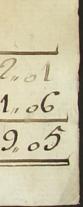 2,,01
1,,06
9,,05